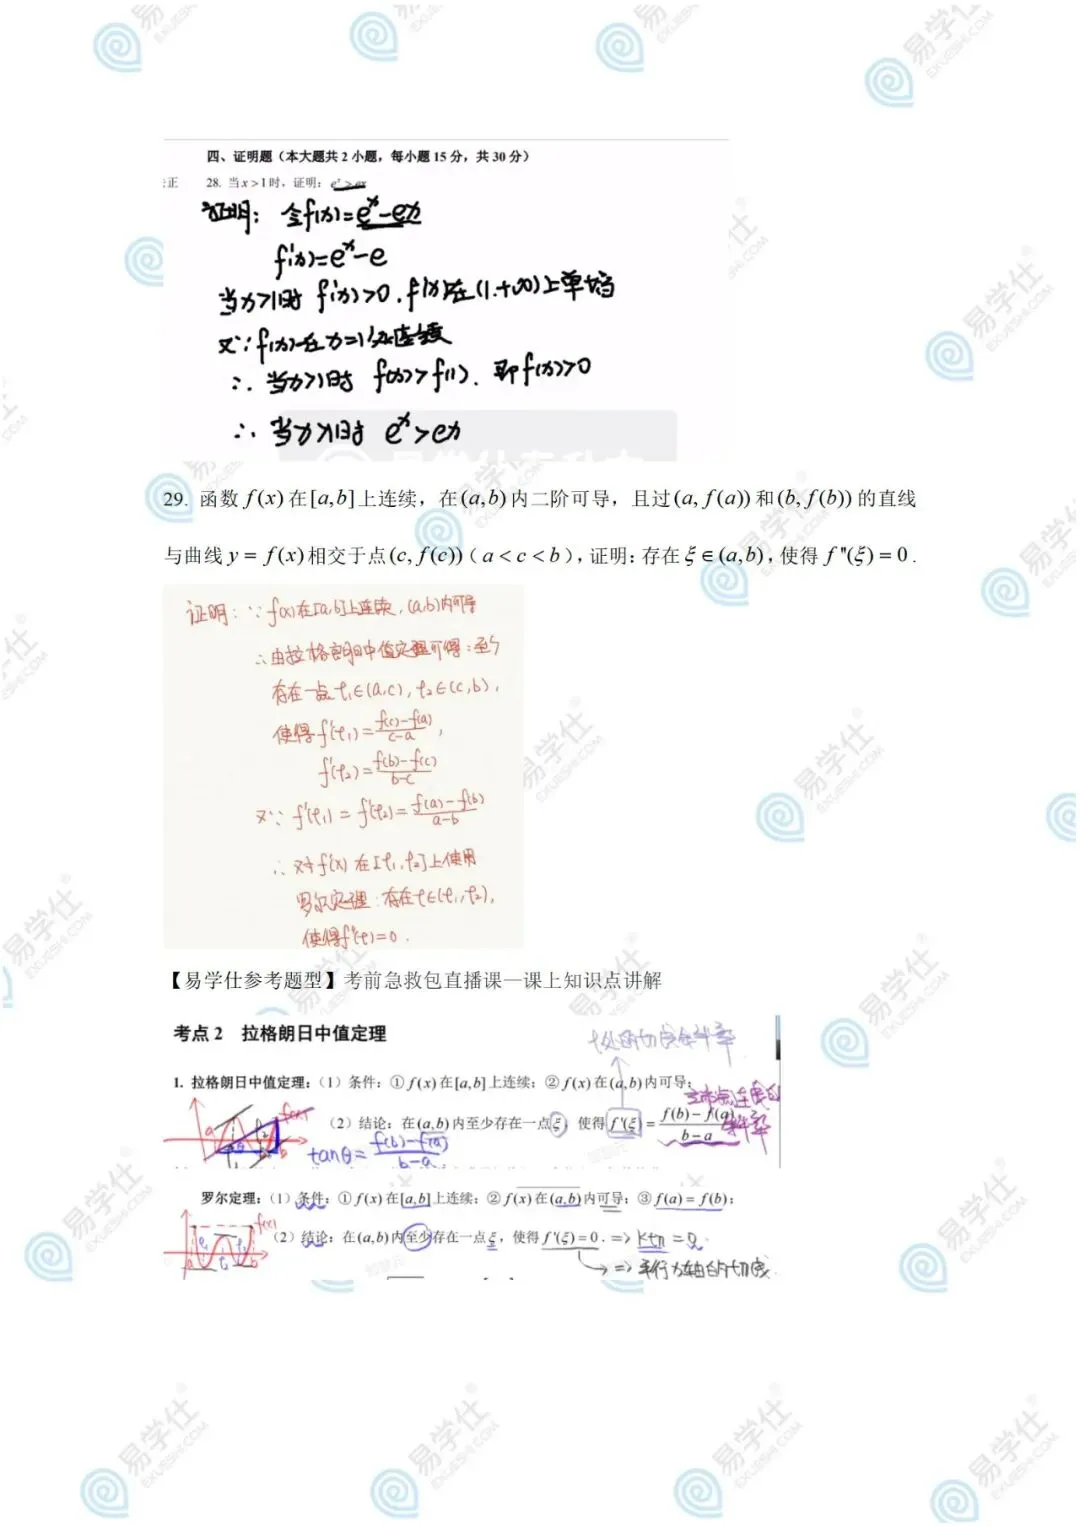 四、证明题（本大题共 2 小题，每小题 15 分，共 30 分）
28. 当 x > 1 时，证明：e^x > ex
证明：令f(x)=e^x-ex
f'(x)=e^x-e
当x>1时 f'(x)>0, f(x)在(1,+∞)上单增
又∵f(x)在x=1处连续
∴当x>1时 f(x)>f(1), 即f(x)>0
∴当x>1时 e^x>ex
29. 函数 f(x) 在 [a,b] 上连续，在 (a,b) 内二阶可导，且过 (a, f(a)) 和 (b, f(b)) 的直线
与曲线 y = f(x) 相交于点 (c, f(c))（a < c < b），证明：存在 ξ∈(a,b)，使得 f''(ξ) = 0 .
证明：∵f(x)在[a,b]上连续，(a,b)内可导
∴由拉格朗日中值定理可得：至少
存在一点 ξ₁∈(a,c), ξ₂∈(c,b),
使得 f'(ξ₁)=\frac{f(c)-f(a)}{c-a},
f'(ξ₂)=\frac{f(b)-f(c)}{b-c}
又∵ f'(ξ₁) = f'(ξ₂) = \frac{f(a)-f(b)}{a-b}
∴对f'(x) 在 [ξ₁,ξ₂]上使用
罗尔定理：存在ξ∈(ξ₁,ξ₂),
使得f''(ξ)=0.
【易学仕参考题型】考前急救包直播课—课上知识点讲解
考点 2 拉格朗日中值定理
1. 拉格朗日中值定理：（1）条件：① f(x) 在 [a,b] 上连续；② f(x) 在 (a,b) 内可导；
（2）结论：在 (a,b) 内至少存在一点 ξ，使得 f'(ξ) = \frac{f(b)-f(a)}{b-a}
tanθ = \frac{f(b)-f(a)}{b-a}
罗尔定理：（1）条件：① f(x) 在 [a,b] 上连续；② f(x) 在 (a,b) 内可导；③ f(a) = f(b)；
（2）结论：在 (a,b) 内至少存在一点 ξ，使得 f'(ξ) = 0 . => k切 = 0
=> 平行x轴的切线
易学仕
EXUESHI.COM